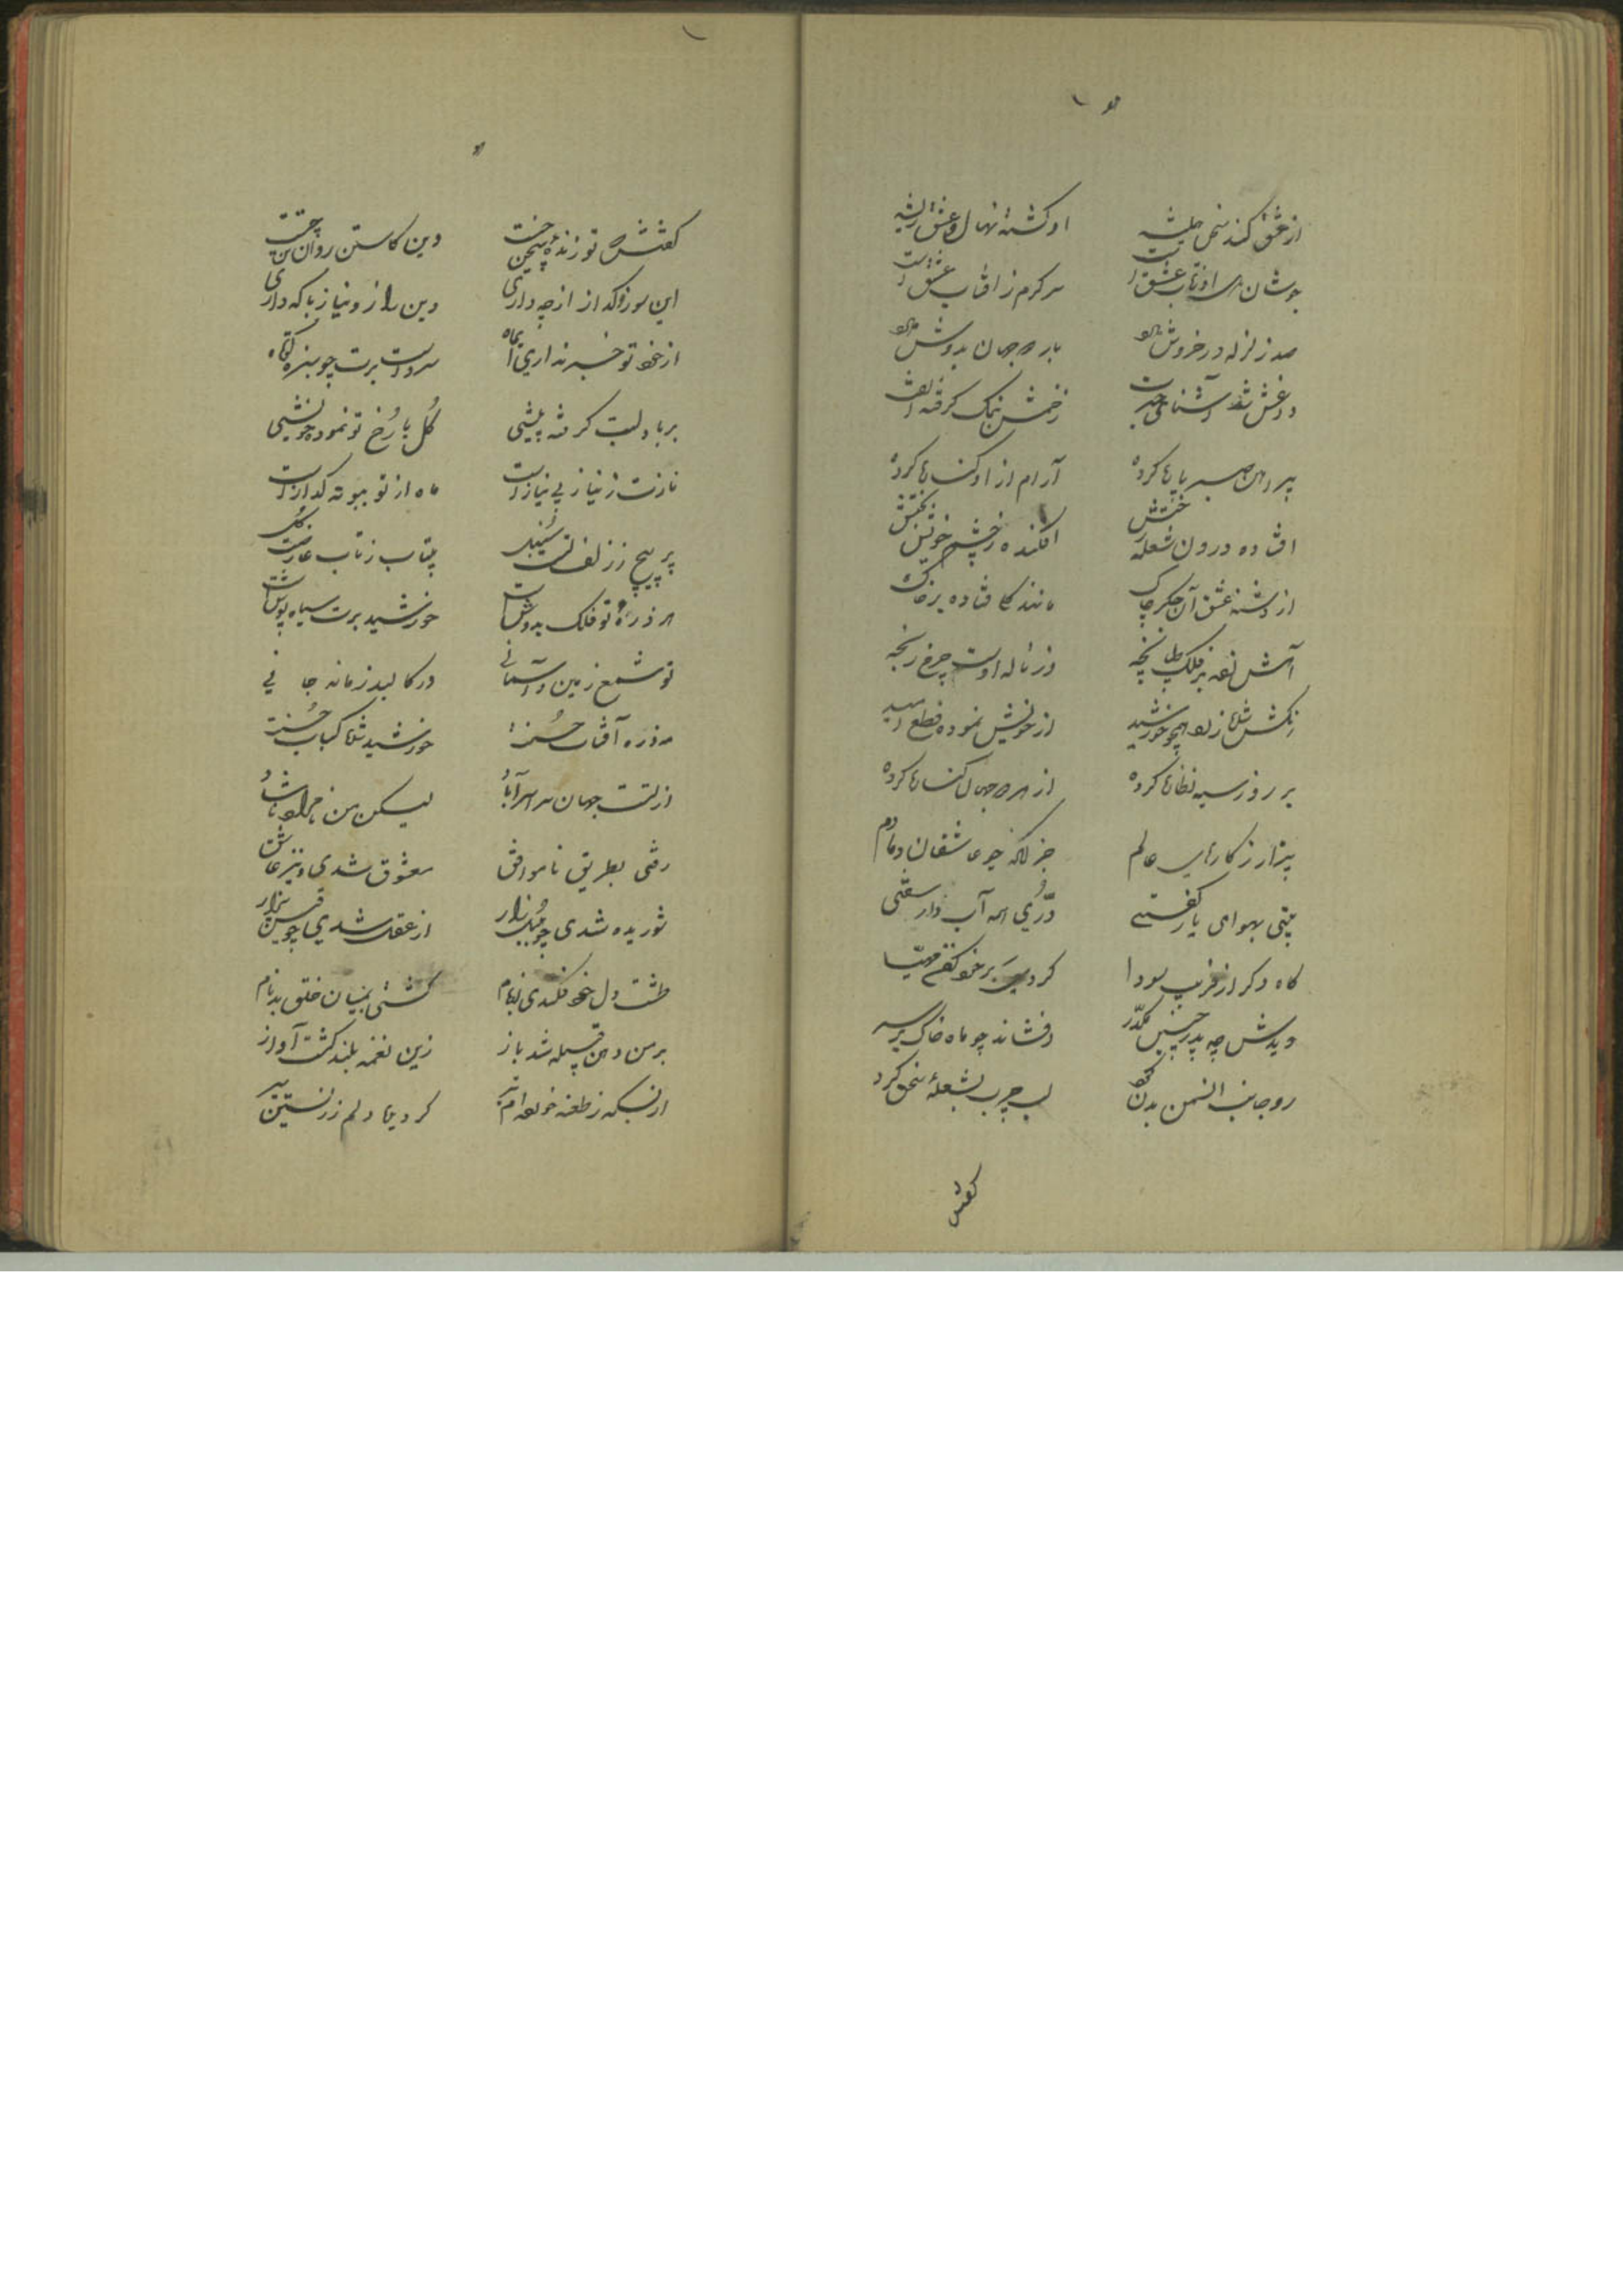 از عشق کند سخن همیشه او کشته نهال و عشق ریشه
جوشان سر او ز تاب عشق است سر گرم ز آفتاب عشق است
صد زلزله در خروش با او بار دو جهان بدوش با او
آشنای زخمش نمک گرفته
پیراهن صبر پاره کرده آرام از او کناره کرده
افتاده درون شعله افکنده ز چشم خویش
از دشنه عشق آن جگر چاک مانند فتاده بر خاک
آهش بفلک طپانچه وز ناله اوست چرخ رنجه
همچو خورشید از خویش نموده قطع امید
بر روز سیه نظاره کرده از هر دو جهان کناره کرده
بیزار ز کارهای عالم جز ناله چو عاشقان دمادم
بیتی بهوای یار گفتی درّی همه آب دار سفتی
گاه دگر از فریب سودا کردی
دیدش چه پدر چنین مکدّر افشاند چو ماه خاک بر سر
رو جانب انجمن بدن کرد لب چرب بشعلهٔ سخن کرد
گفتش
گفتش تو زنده چیست وین کاستن روان تن چیست
این سوز و گداز از چه داری وین راز و نیاز با که داری
از خود تو خبر نداری ای ماه سرو است برت چو سبزه کوتاه
بر باد لبت گرفته پیشی گل با رخ تو نموده خویشی
نازت ز نیاز بی نیاز است ماه از تو ببوته گداز است
پر پیچ ز زلف تست سنبل بیتاب ز تاب عارضت گل
هر ذرهٔ تو فلک بدوش است خورشید برت سیاه پوش است
تو شمع زمین و آسمانی در کالبد زمانه جانی
مه ذره آفتاب حسنت خورشید کباب حسنت
از تست جهان سراسر آباد لیکن من
رفتی بطریق ناموافق معشوق شدی و نیز عاشق
شوریده شدی چو بلبل زار از عقل شدی چو قیس بیزار
طشت دل خود فکندی از بام گشتی بمیان خلق بدنام
بر من دهن قبیله شد باز زین نغمه بلند گشت آواز
از بسکه ز طعنه خورده‌ام تیر گردیده دلم ز زیستن سیر